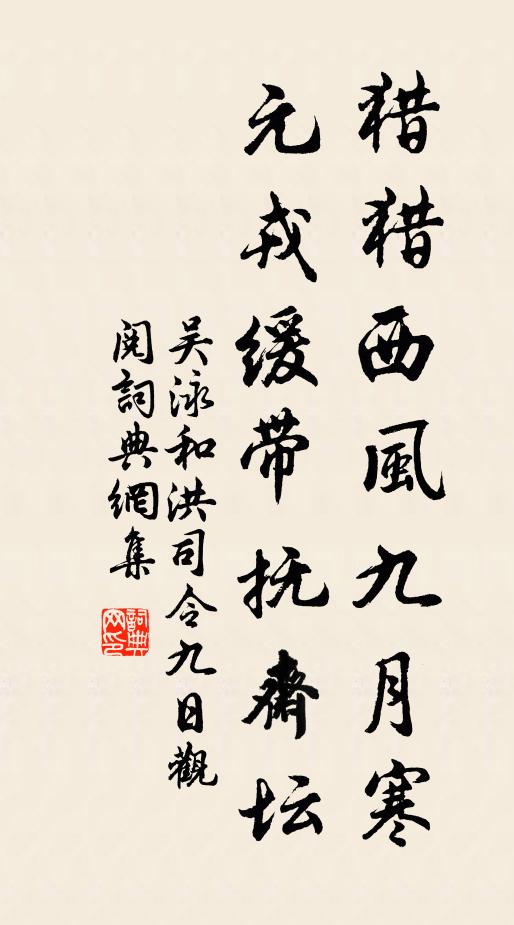 猎猎西風九月寒
元戎缓带抚齋坛
吴泳和洪司令九日觀
阅詞典網集
詞典
网印